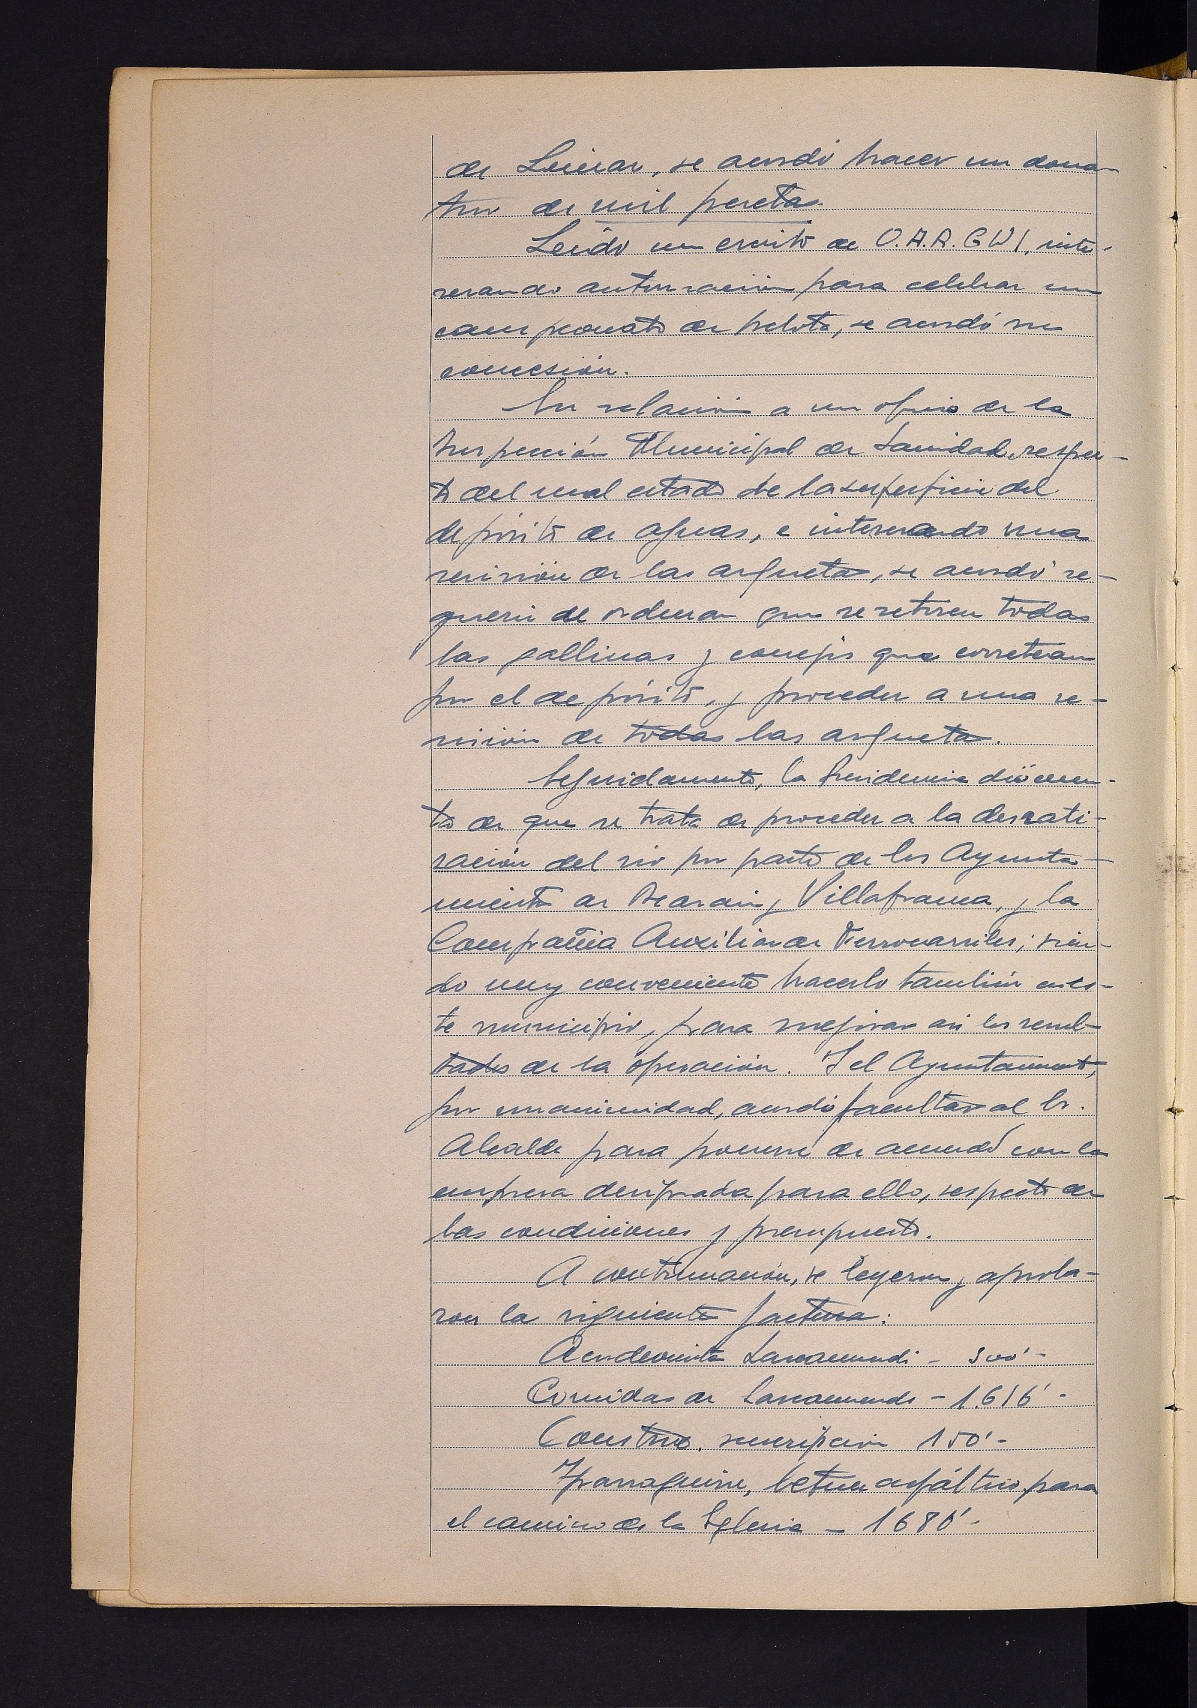 de Leizar, se acordó hacer un dona-
tivo de mil pesetas.
Leido un escrito de O.A.R.GUI, inte-
resando autorización para celebrar un
campeonato de pelota, se acordó su
concesión.
En relación a un oficio de la
Inspección Municipal de Sanidad, respec-
to del mal estado de la superficie del
depósito de aguas, e interesando una
revisión de las arquetas, se acordó re-
querir de orden que se retiren todas
las gallinas y conejos que corretean
por el depósito, y proceder a una re-
visión de todas las arquetas.
Seguidamente, la Presidencia dió cuen-
ta de que se trata de proceder a la desrati-
zación del rio por parte de los Ayunta-
mientos de Beasain y Villafranca, y la
Compañia Auxiliar de Ferrocarriles; sien-
do muy conveniente hacerlo también en es-
te municipio, para mejorar asi los resul-
tados de la operación. Y el Ayuntamiento,
por unanimidad, acordó facultar al Sr.
Alcalde para ponerse de acuerdo con la
empresa designada para ello, respecto de
las condiciones y presupuesto.
A continuación, se leyeron y aproba-
ron las siguientes facturas:
Lazcaomendi - 300'-
Comidas de Lazcaomendi - 1.616'-
suscripción 150'-
Yparraguirre, betun asfáltico para
el camino de la Iglesia - 1680'-